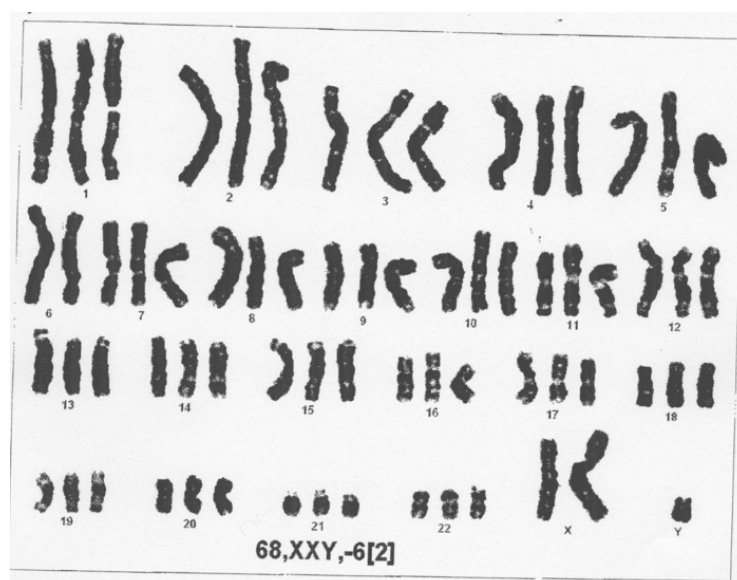 1 2 3 4 5
6 7 8 9 10 11 12
13 14 15 16 17 18
19 20 21 22 X Y
68,XXY,-6[2]